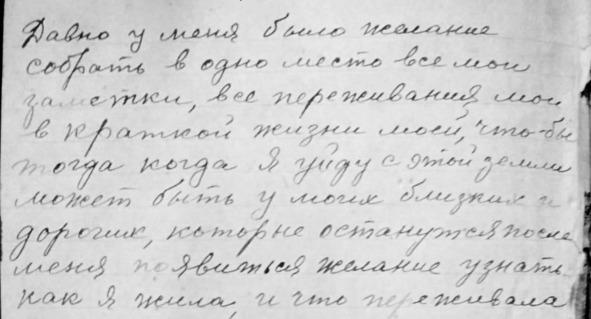 Давно у меня было желание
собрать в одно место все мои
заметки, все переживания мои
в краткой жизни моей, что-бы
тогда когда я уйду с этой земли
может быть у моих близких и
дорогих, которые останутся после
меня появиться желание узнать
как я жила, и что переживала